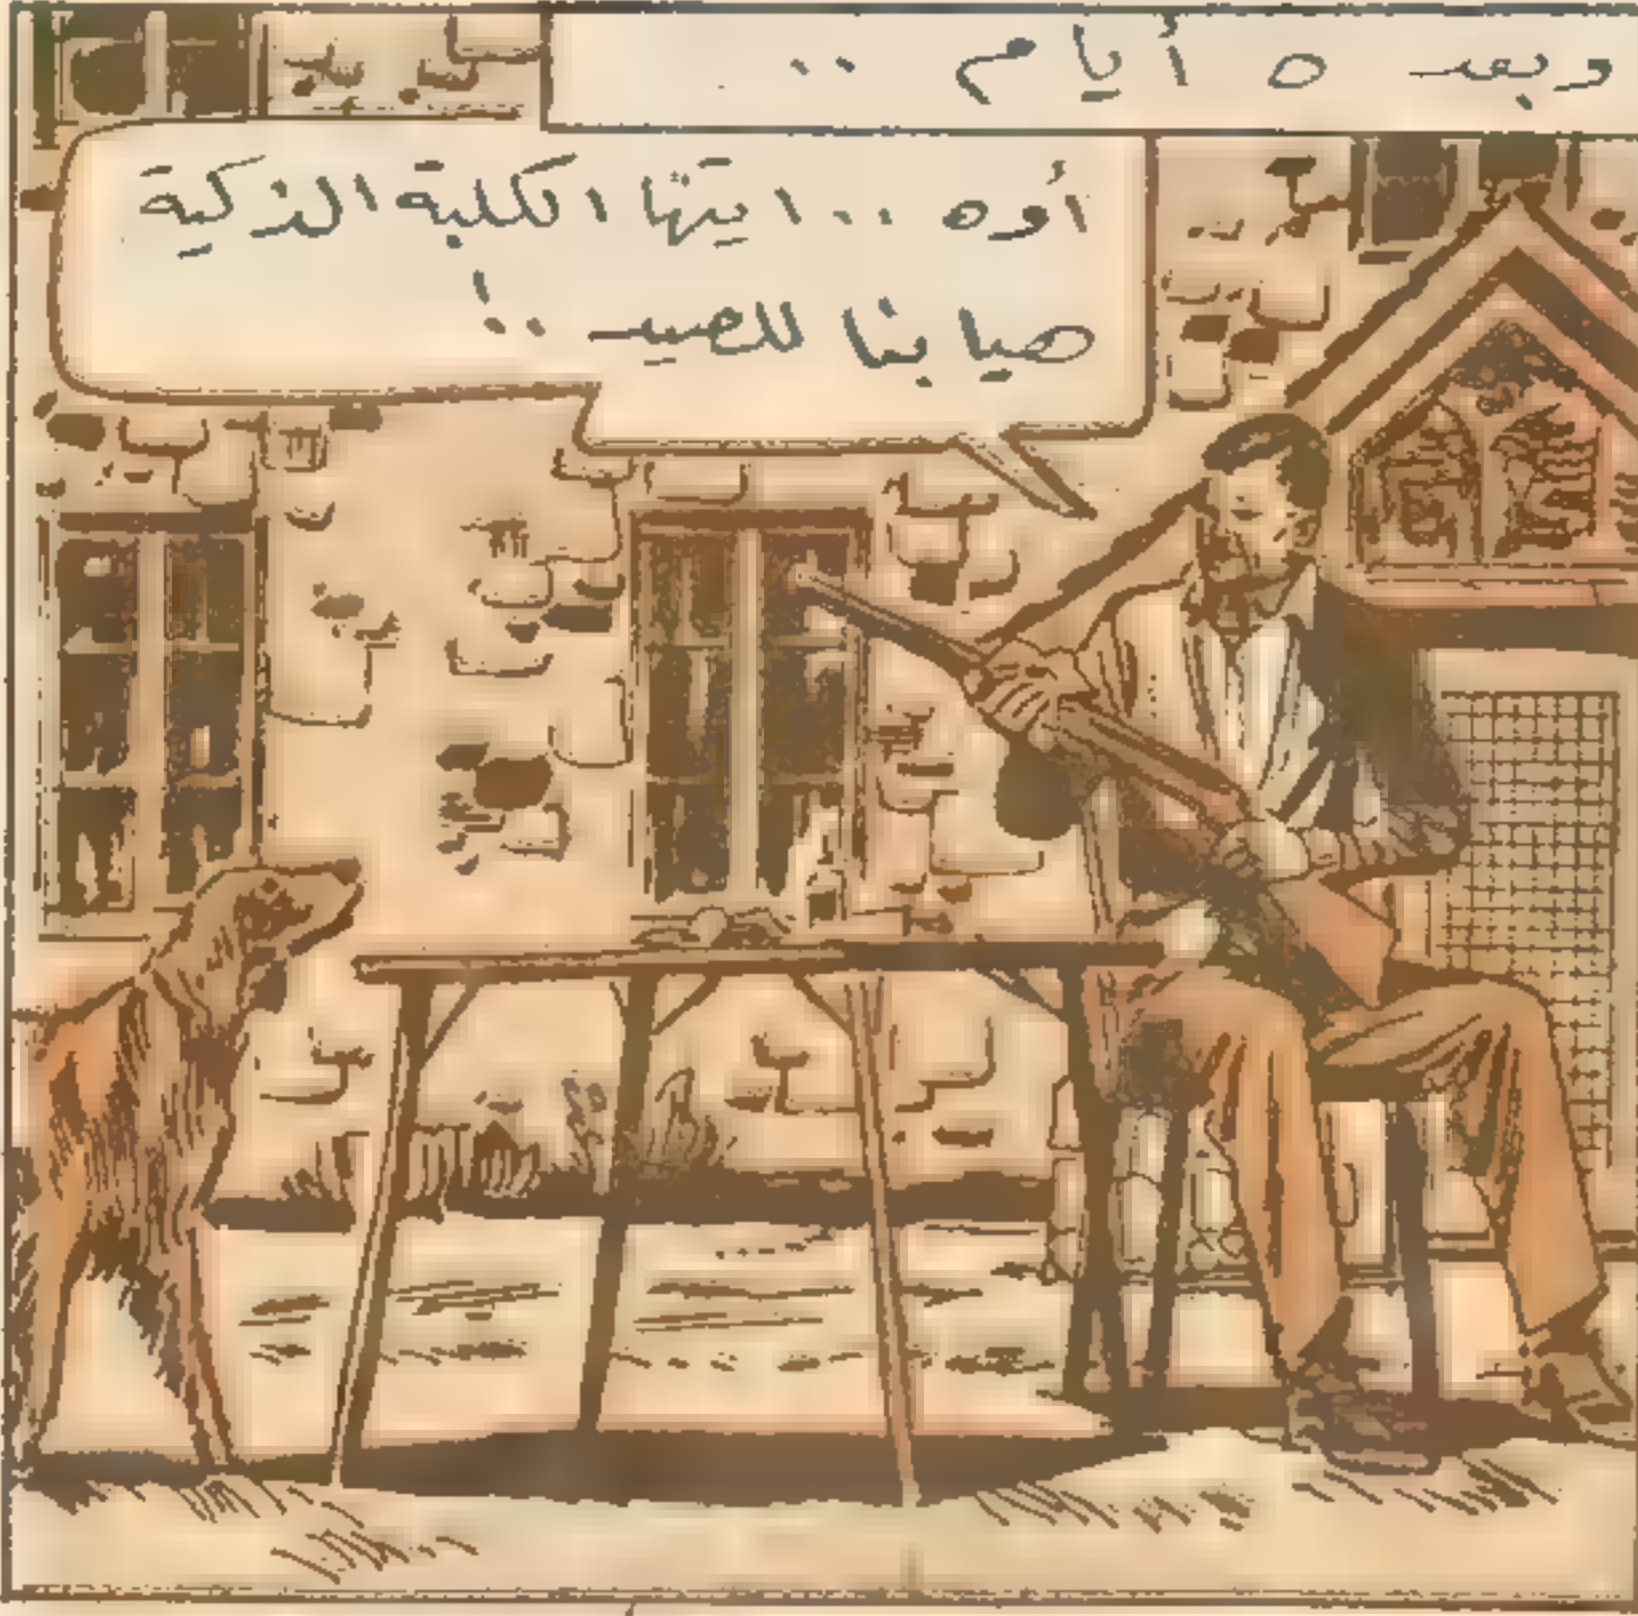 وبعد ٥ أيام ..
أوه .. ايتها الكلبة الذكية
هيا بنا للصيد ..!